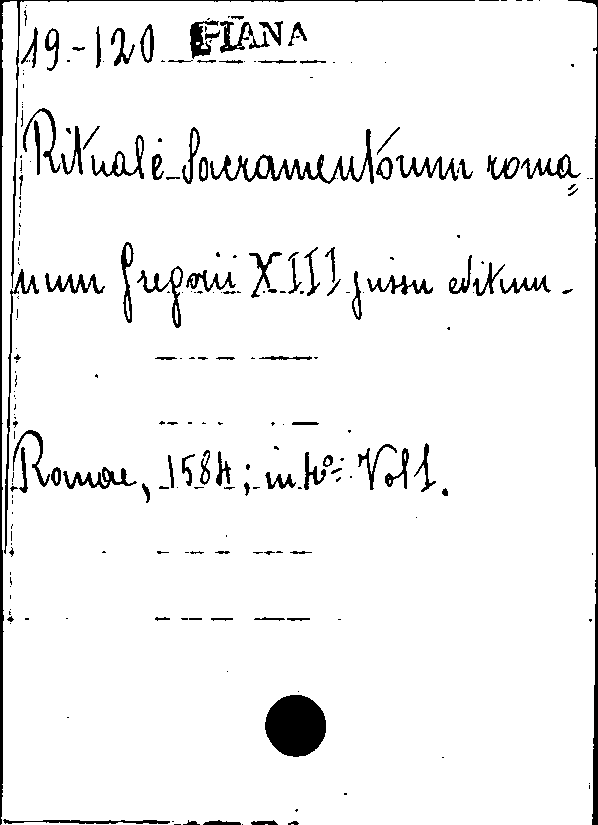 19-120 PIANA
Rituale Sacramentorum roma=
num Gregorii XIII jussu editum-
Romae, 1584; in 4º: Vol 1.